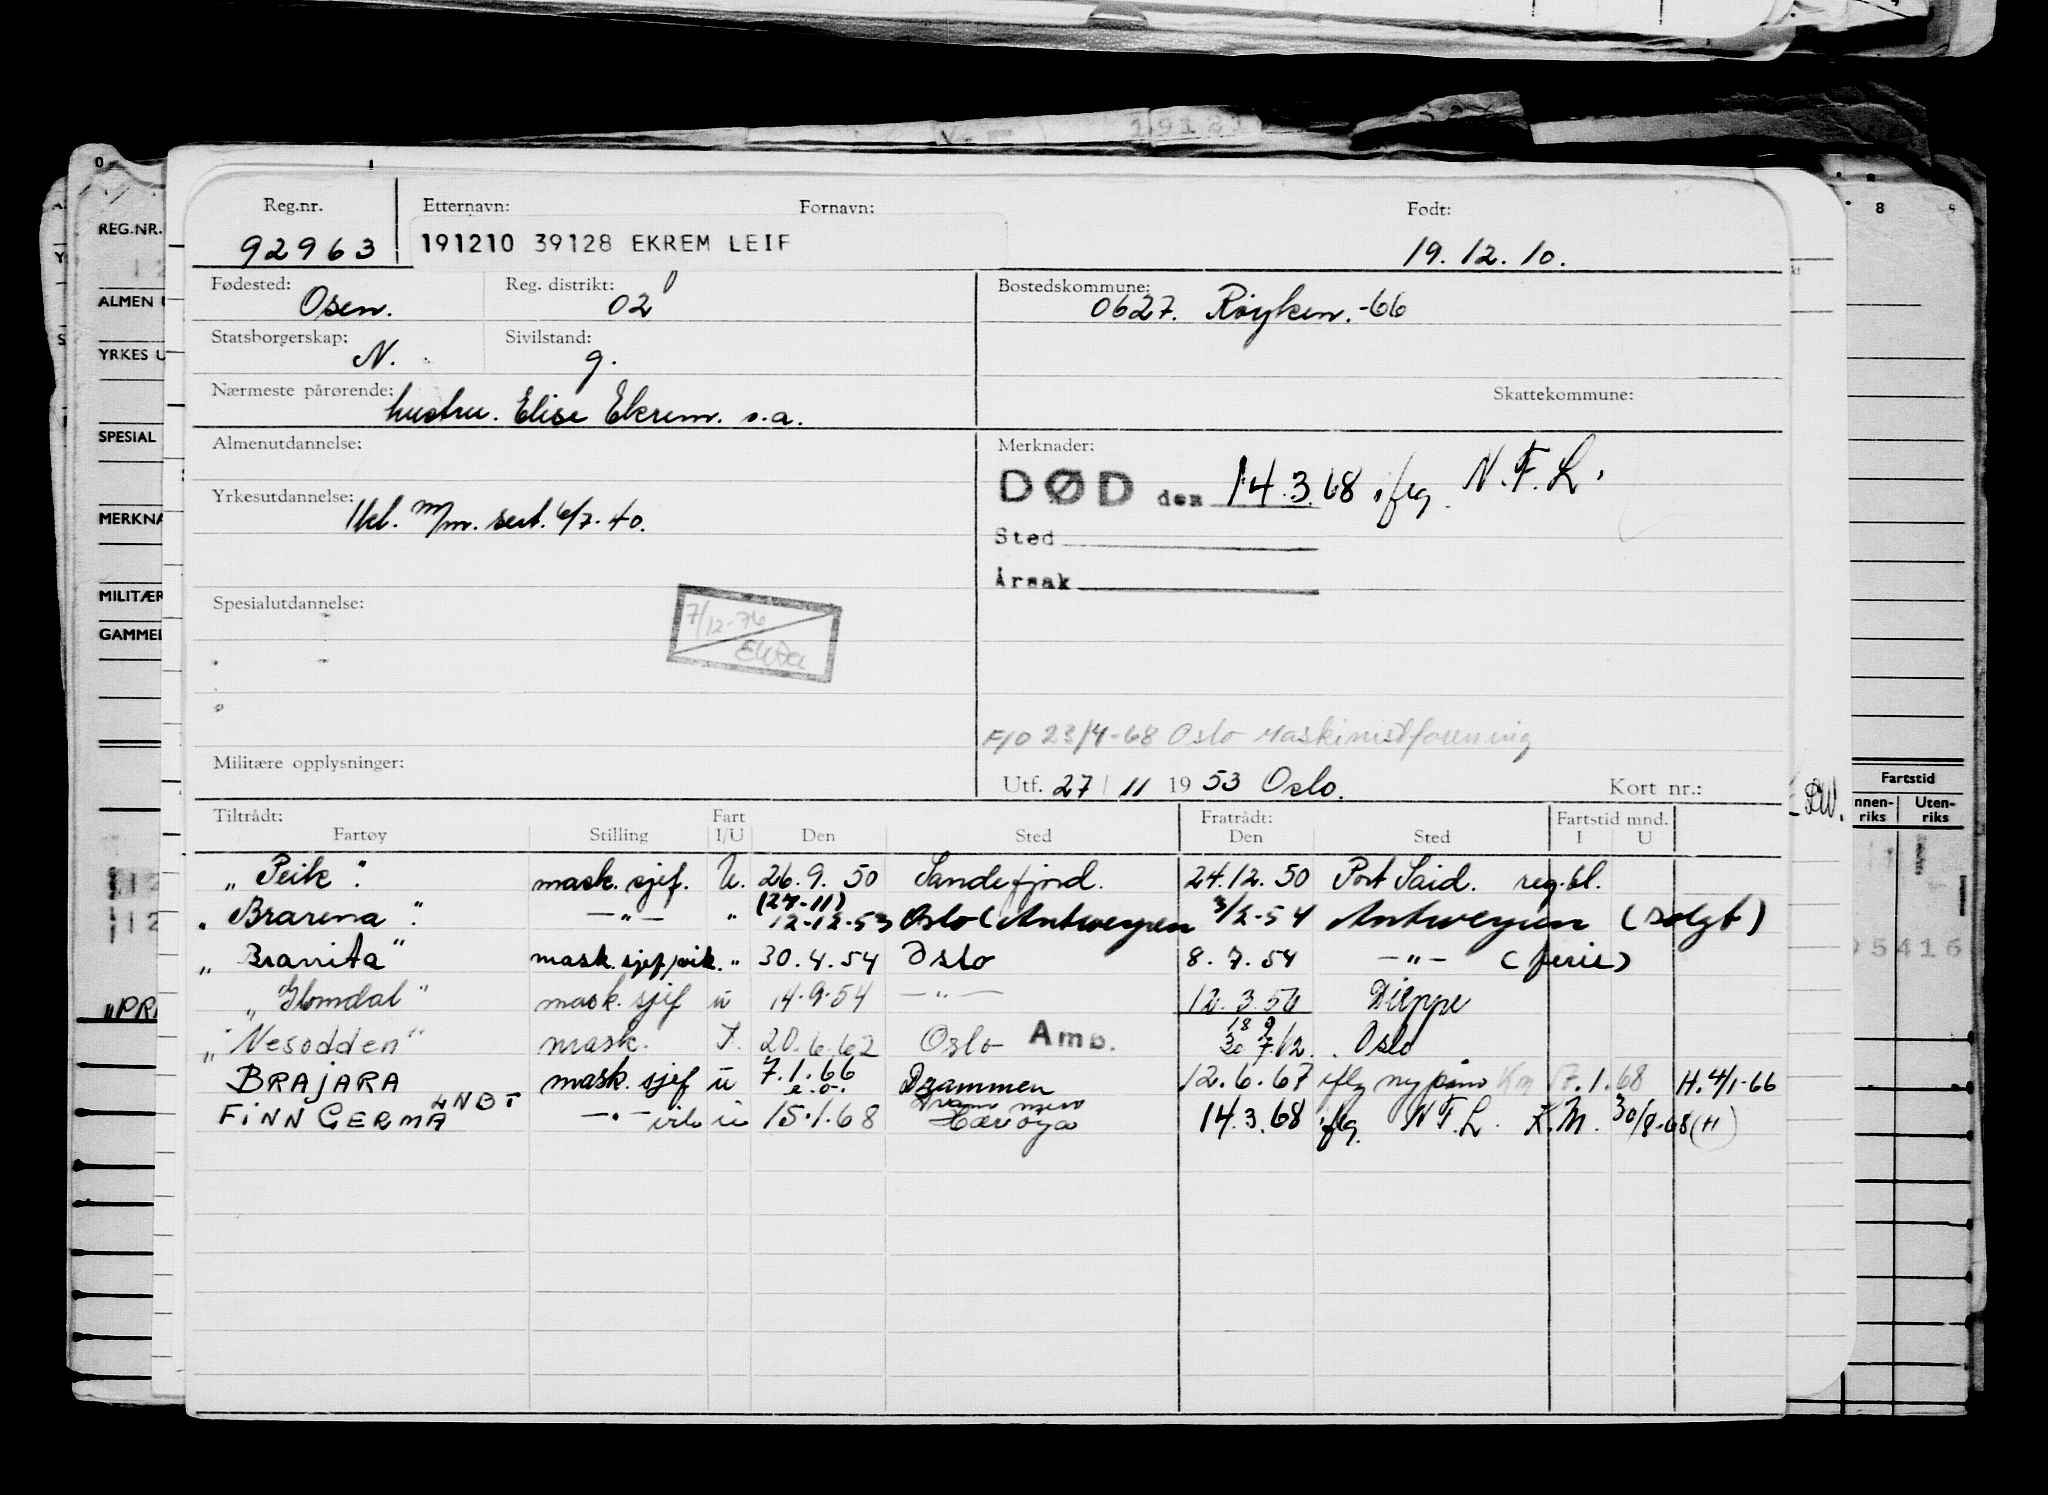 Reg.nr. Etternavn: Fornavn: Født:
92963 191210 39128 EKREM LEIF 19.12.10.
Fødested: Osen. Reg. distrikt: 02 Bostedskommune: 0627. Røyken.-66
Statsborgerskap: N. Sivilstand: g.
Nærmeste pårørende: hustru. Elise Ekrem. s.a. Skattekommune:
Almenutdannelse: Merknader:
DØD den 14.3.68 iflg. N.F.L.
Yrkesutdannelse: 1kl. m/m. sert. 6/7-40.
Sted
Årsak
Spesialutdannelse:
7/12-76
F/O 23/4-68 Oslo Maskinistforening
Militære opplysninger:
Utf. 27/11 1953 Oslo. Kort nr.:
Tiltrådt: Fart Fratrådt: Fartstid mnd.
Fartøy Stilling I/U Den Sted Den Sted I U
"Peik". mask. sjef. U. 26.9.50 Sandefjord. 24.12.50 Port Said. reg.bl.
(27-11)
"Brarena". —"— " 12-12-53 Oslo (Antwerpen 3/2-54 Antwerpen (solgt)
"Branita" mask. sjef, vik. " 30.4.54 Oslo 8.7.54 —"— (ferie)
"Glomdal" mask. sjef u 14.9.54 —"— 12.3.56 Dieppe
18 9
"Nesodden" mask. I. 20.6.62 Oslo Amb. 30 7.62. Oslo
BRAJARA mask. sjef u 7.1.66 Drammen 12.6.67 iflg ny påm Km 17.1.68 H.4/1-66
e.o.
FINN GERMA LNBT —"— vik u 15.1.68 Herøya 14.3.68 iflg. N.F.L. K.M. 30/8-68 (H)
REG.NR.
ALMEN U
YRKES U
SPESIAL
MERKNA
MILITÆR
GAMMEL
"PRA
DW.
Fartstid
nnen-riks Uten-riks
5416